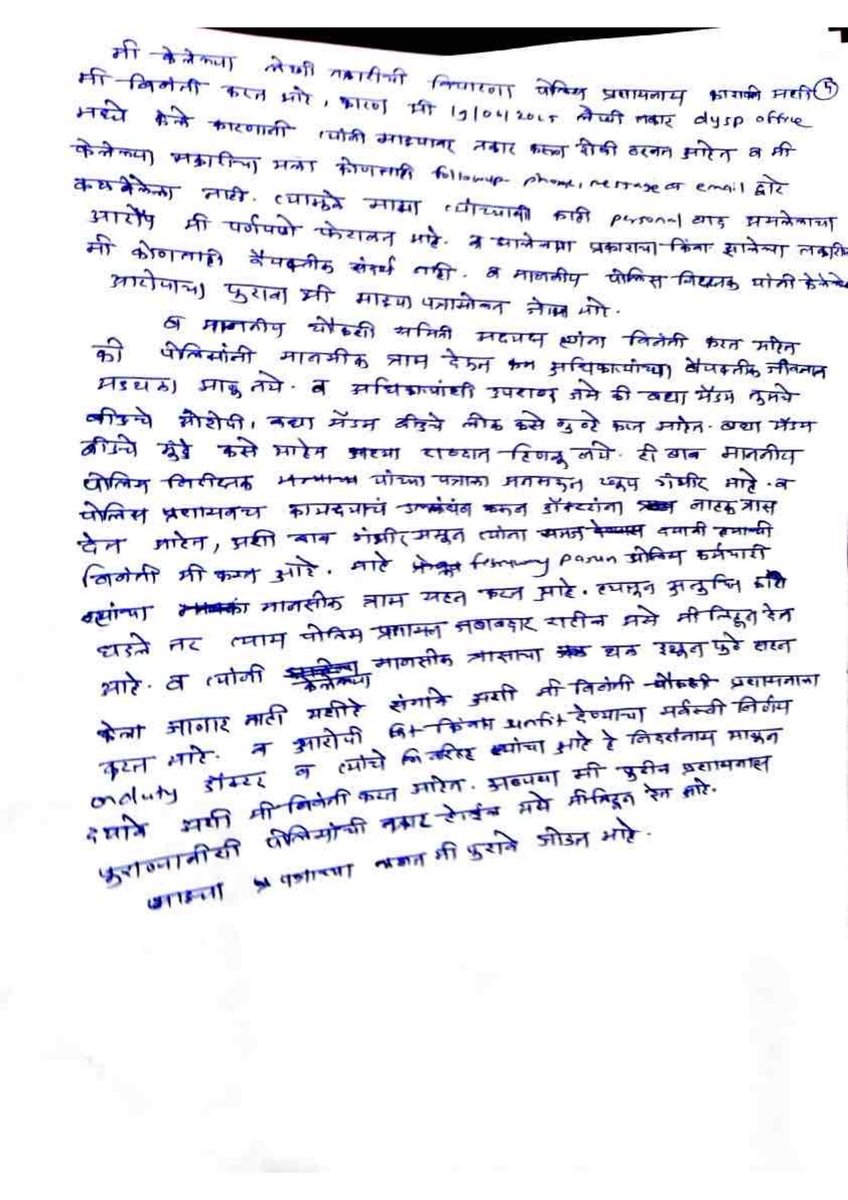 मी केलेल्या लेखी तक्रारीची विचारणा पोलिस प्रशासनास करावी अशी ५
मी विनंती करत आहे, कारण मी लेखी तक्रार dysp office
मध्ये केले कारणानी त्यांनी माझ्यावर तक्रार करून दोषी ठरवत आहेत व मी
केलेल्या तक्रारीचा मला कोणताही followup phone, message व email द्वारे
कळवलेला नाही. त्यामुळे माझा त्यांच्याशी काही personal वाद असलेकाचा
आरोप मी पूर्णपणे फेटाळत आहे. व झालेल्या प्रकाराचा किंवा झालेल्या तक्रारीचा
मी कोणताही वैयक्तीक संदर्भ नाही. व माननीय पोलिस निरीक्षक यांनी केलेल्या
आरोपाचा पुरावा मी माझ्या पत्रासोबत जोडत आहे.
व माननीय चौकशी समिती सदस्य त्यांना विनंती करत आहेत
की पोलिसांनी मानसीक त्रास देऊन अधिकाऱ्यांच्या वैयक्तीक जीवनात
अडथळा आणू नये. व अधिकाऱ्यांशी जसे की बघा मॅडम तुमचे
बीडचे आरोपी, बघा मॅडम बीडचे लोक कसे गुन्हे करत आहेत. बघा मॅडम
बीडचे मुंडे कसे आहेत अश्या शब्दात हिणवू नये. ही बाब माननीय
पोलिस निरीक्षक यांच्या पत्राला अनुसरून खूप गंभीर आहे. व
पोलिस प्रशासनच कायद्याचं उल्लंघन करून डॉक्टरांना नाहक त्रास
देत आहेत, अशी बाब गंभीर असून त्यांना समज द्यावी
विनंती मी करत आहे. february pasun पोलिस कर्मचारी
यांचा मानसीक त्रास सहन करत आहे. त्यातून अनुचित काही
घडले तर त्यास पोलिस प्रशासन जबाबदार राहील असे मी लिहून देत
आहे. व त्यांनी केलेल्या मानसीक त्रासाचा पुढे सहन
केला जाणार नाही यशीहे सांगावे अशी मी विनंती प्रशासनाला
करत आहे. व आरोपी fit किंवा unfit देण्याचा सर्वस्वी निर्णय
onduty डॉक्टर व त्यांचे वरिष्ठ यांचा आहे हे निदर्शनास आणून
द्यावे अशी मी विनंती करत आहेत. अन्यथा मी पुढील प्रशासनास
पुराव्यानीशी पोलिसांची तक्रार असे मी लिहून देत आहे.
माझ्या पत्राच्या मी पुरावे जोडत आहे.